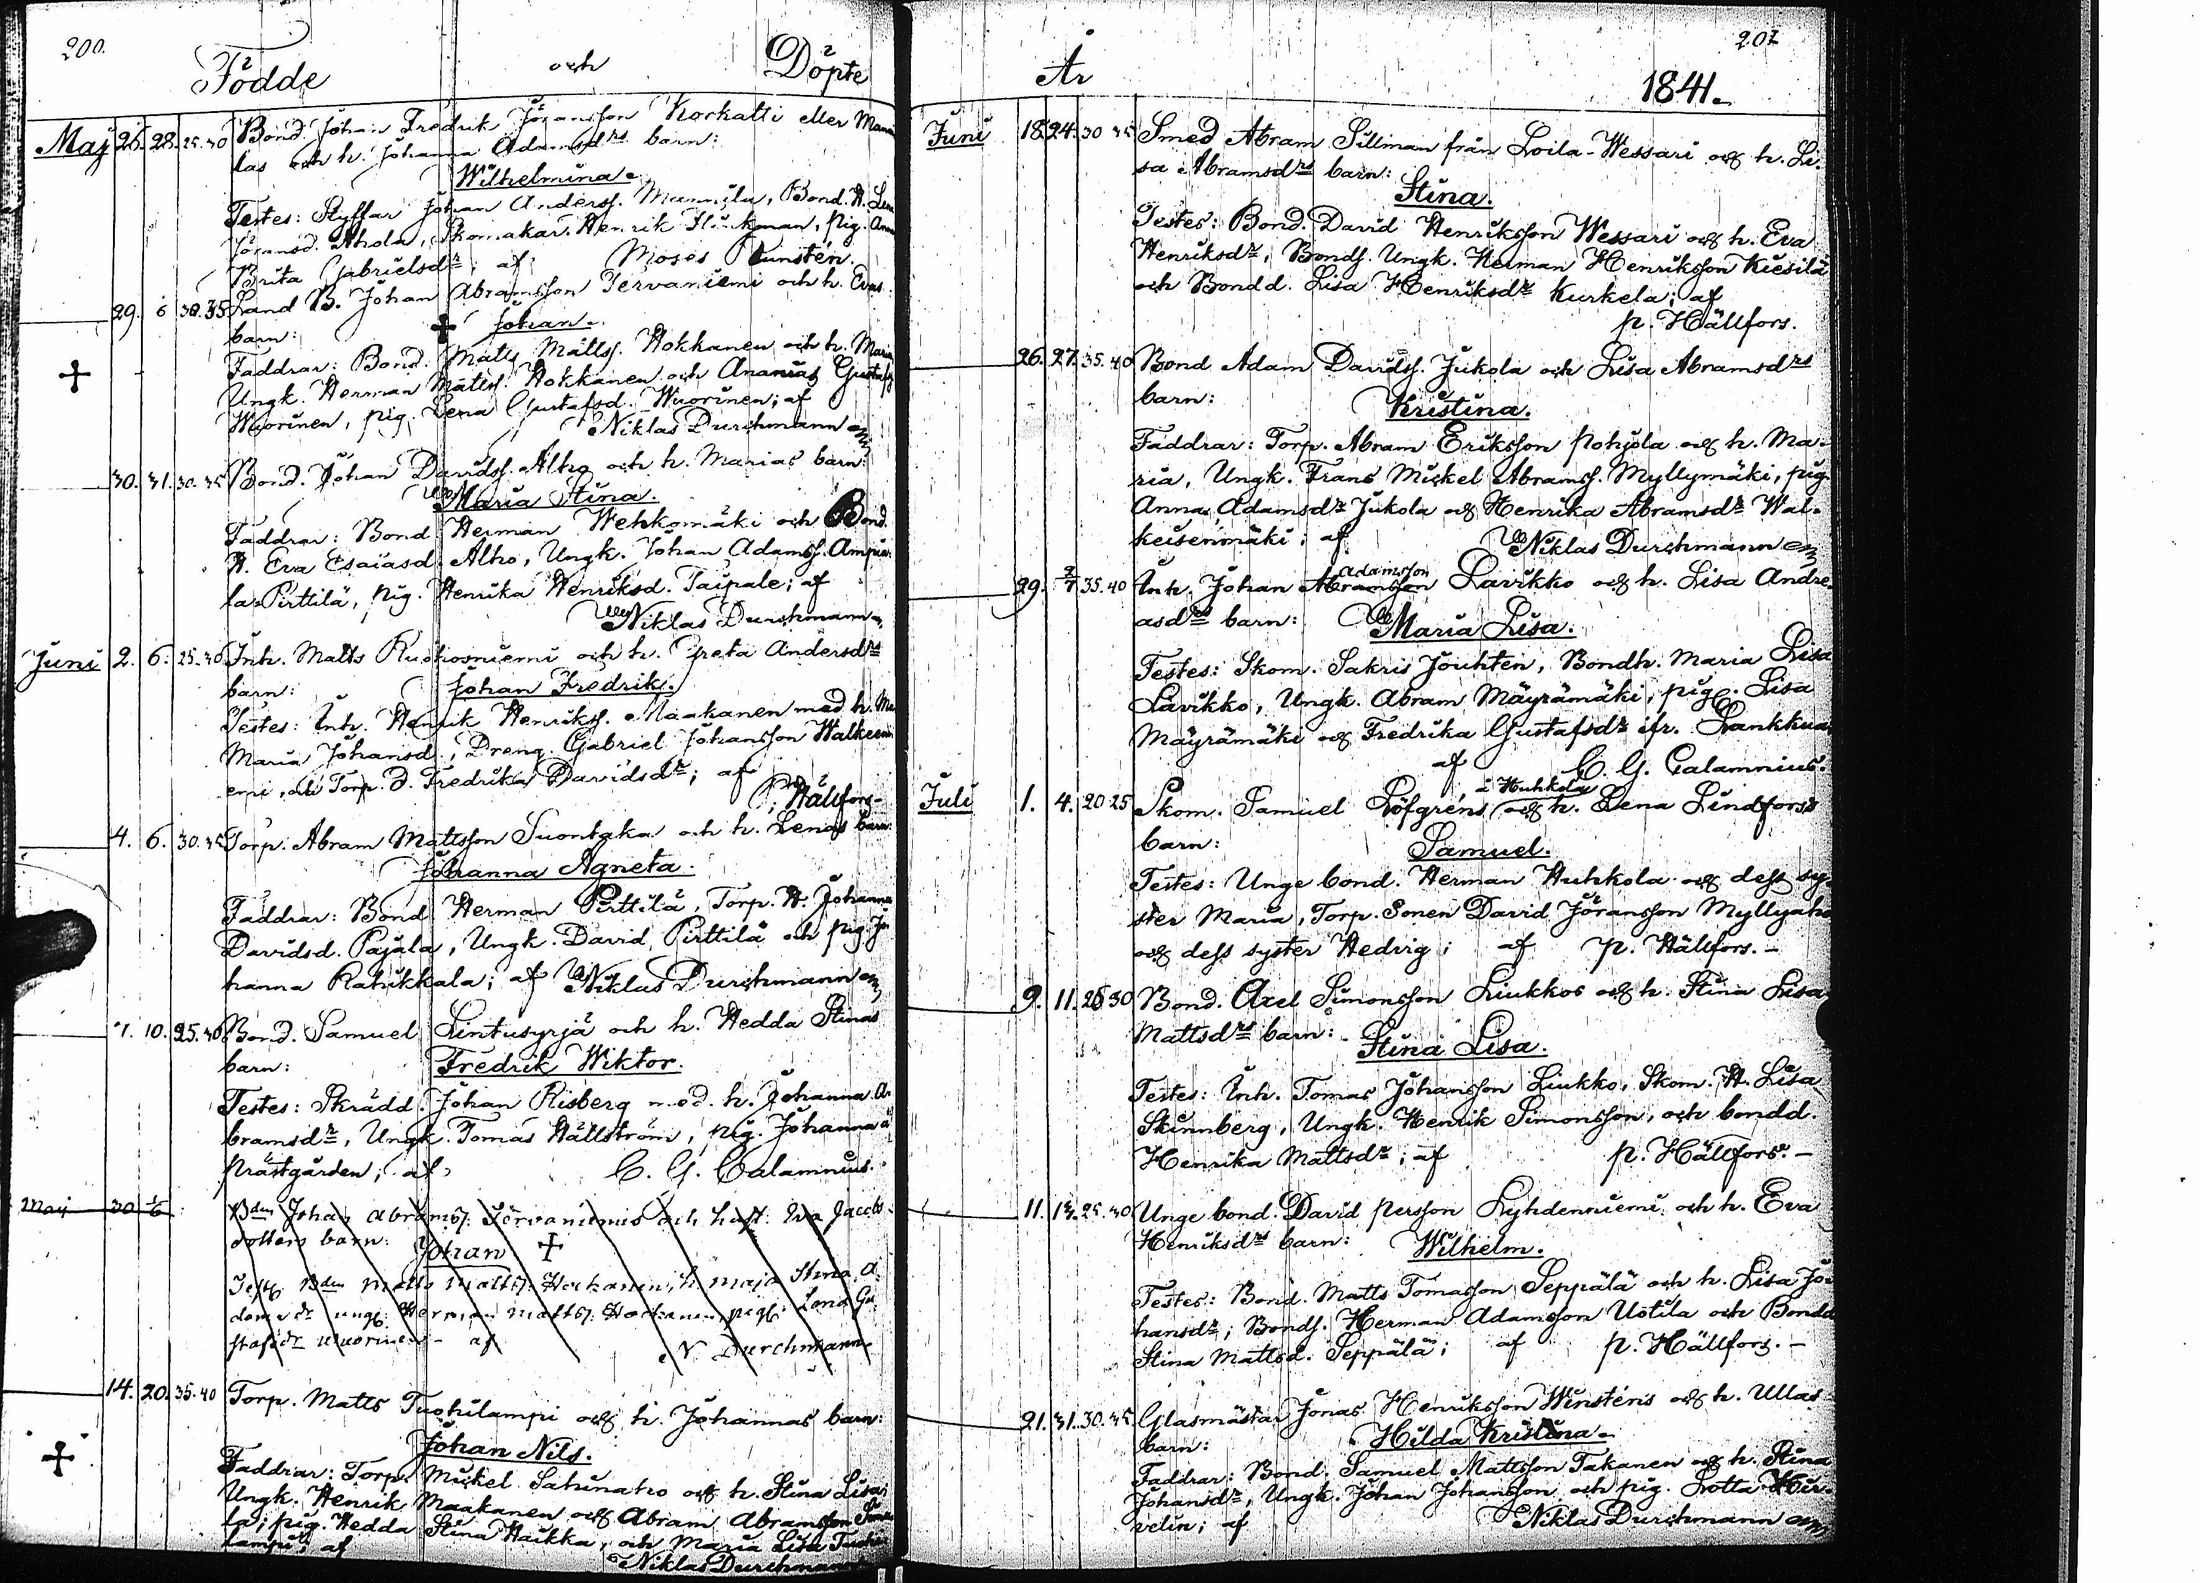 200.
Födde och Döpte
Maj 26. 28. 25.30 Bond. Johan Fredrik Jöransson Korkatti eller Manni
las och h. Johanna Adamsdrs barn:
Wilhelmina.
Testes: Ryttar Johan Anderss. Mannila, Bond. H. Lena
Jöransd. Ahola, Skomakar. Henrik Flinkman, pig. Anna
Brita Gabrielsdr; af Moses Kunstén.
29. 6 30.35 Land B. Johan Abramsson Tervaniemi och h. Evas
barn: Johan.
Faddrar: Bond. Matts Mattss. Hokkanen och h. Maria
Ungk. Herman Mattss. Hokkanen och Ananias Gustafss
Wuorinen, pig. Lena Gustafsd. Wuorinen; af
Niklas Durchmann
30. 31. 30.35 Bond. Johan Davidss. Alho och h. Marias barn:
Maria Stina.
Faddrar: Bond Herman Wehkomäki och Bond.
H. Eva Esaiasd. Alho, Ungk. Johan Adamss. Ampia
la Pirttilä, pig. Henrika Henriksd. Taipale; af
Niklas Durchmann
Juni 2. 6. 25.30 Inh. Matts Ruohosniemi och h. Greta Andersdrs
barn: Johan Fredrik.
Testes: Inh. Henrik Henrikss. Maakanen med h. Ma
Maria Johansd., Dreng. Gabriel Johansson Walkeini
emi, och Torp. d. Fredrika Davidsdr; af
P. Hällfors.
4. 6. 30.35 Torp. Abram Mattsson Suontaka och h. Lenas barn:
Johanna Agneta.
Faddrar: Bond Herman Pirttilä, Torp. H. Johanna
Davidsd. Pajala, Ungk. David Pirttilä och pig. Jo
hanna Rahikkala; af Niklas Durchmann
7. 10. 25.30 Bond. Samuel Lintusyrjä och h. Hedda Stinas
barn: Fredrik Wiktor.
Testes: Skrädd. Johan Risberg med h. Johanna A
bramsdr, Ungk. Tomas Hällström, pig. Johanna å
Prästgården; af C. G. Calamnius.
Maij 30 /6 Bden Johan Abramss. Tervaniemis och hust. Eva Jacobs
dotters barn: Johan
Test. Bden Matts Mattss. Hockanen, h. Maja Stina A
damsdr ungk. Herman Mattss. Hockanen, pig. Lena Gu
stafsdr Wuorinen – af N. Durchmann
14. 20. 35.40 Torp. Matts Tuohilampi och h. Johannas barn:
Johan Nils.
Faddrar: Torp. Mickel Sahinaho och h. Stina Lisa;
Ungk. Henrik Maakanen och Abram Abramsson
la; pig. Hedda Stina Haikka, och Maria Lisa Tuohi
lampi; af Niklas Durchmann
201
År 1841.
Juni 18. 24. 30 35 Smed Abram Sillman från Loila-Wessari och h. Li-
sa Abramsdrs barn:
Stina.
Testes: Bond. David Henriksson Wessari och h. Eva
Henriksdr, Bonds. Ungk. Herman Henriksson Kiesilä
och Bondd. Lisa Henriksdr Kurkela; af
P. Hällfors.
26. 27. 35.40 Bond Adam Davidss. Jukola och Lisa Abramsdrs
barn: Kristina.
Faddrar: Torp. Abram Eriksson Pohjola och h. Ma-
ria, Ungk. Frans Mickel Abramss. Myllymäki, pig.
Anna Adamsdr Jukola och Henrika Abramsdr Wal-
keisenmäki; af Niklas Durchmann
29. 2/7 35.40 Inh. Johan Abramsson Adamsson Lavikko och h. Lisa Andre-
asdrs barn: Maria Lisa.
Testes: Skom. Sakris Jouhten, Bondh. Maria Lisa
Lavikko, Ungk. Abram Mäyrämäki, pig. Lisa
Mäyrämäki och Fredrika Gustafsdr ifr. Lankkua
af C. G. Calamnius.
Juli 1. 4. 20 25 Skom. Samuel Löfgrens i Huhkola och h. Lena Lindforss
barn: Samuel.
Testes: Unge bond. Herman Huhkola och dess sy-
ster Maria, Torp. Sonen David Jöransson Myllyaho
och dess syster Hedvig; af P. Hällfors. –
9. 11. 25 30 Bond. Axel Simonsson Liukkos och h. Stina Lisa
Mattsdrs barn: Stina Lisa.
Testes: Inh. Tomas Johansson Liukko, Skom. H. Lisa
Skinnberg, Ungk. Henrik Simonsson, och bondd.
Henrika Mattsdr; af P. Hällfors. –
11. 12. 25.30 Unge bond. David Persson Lyhdenniemi och h. Eva
Henriksdrs barn: Wilhelm.
Testes: Bond. Matts Tomasson Seppälä och h. Lisa Jo-
hansdr; Bonds. Herman Adamsson Uotila och Bondd
Stina Mattsd. Seppälä; af P. Hällfors. –
21. 31. 30.35 Glasmästar Jonas Henriksson Winsténs och h. Ullas
barn: Hilda Kristina.
Faddrar: Bond. Samuel Mattsson Takanen och h. Stina
Johansdr, Ungk. Johan Johansson och pig. Lotta Hir-
velin; af Niklas Durchmann